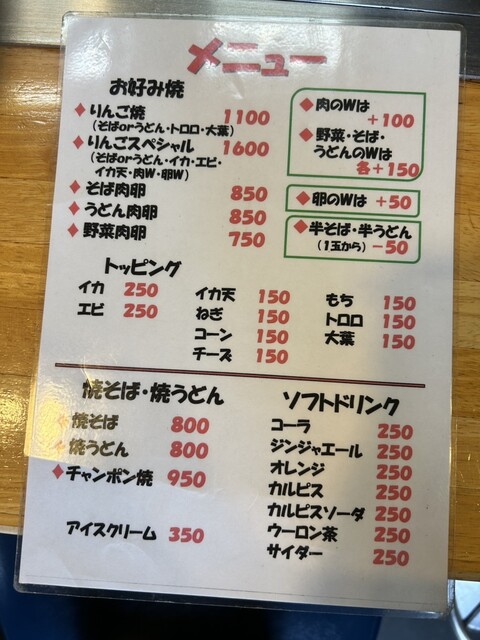 メニュー
お好み焼
◆りんご焼 1100
(そばorうどん・トロロ・大葉)
◆りんごスペシャル 1600
(そばorうどん・イカ・エビ・
イカ天・肉W・卵W)
◆そば肉卵 850
◆うどん肉卵 850
◆野菜肉卵 750
◆肉のWは
+100
◆野菜・そば・
うどんのWは
各+150
◆卵のWは +50
◆半そば・半うどん
(1玉から) -50
トッピング
イカ 250
エビ 250
イカ天 150
ねぎ 150
コーン 150
チーズ 150
もち 150
トロロ 150
大葉 150
焼そば・焼うどん
◆焼そば 800
◆焼うどん 800
◆チャンポン焼 950
アイスクリーム 350
ソフトドリンク
コーラ 250
ジンジャエール 250
オレンジ 250
カルピス 250
カルピスソーダ 250
ウーロン茶 250
サイダー 250